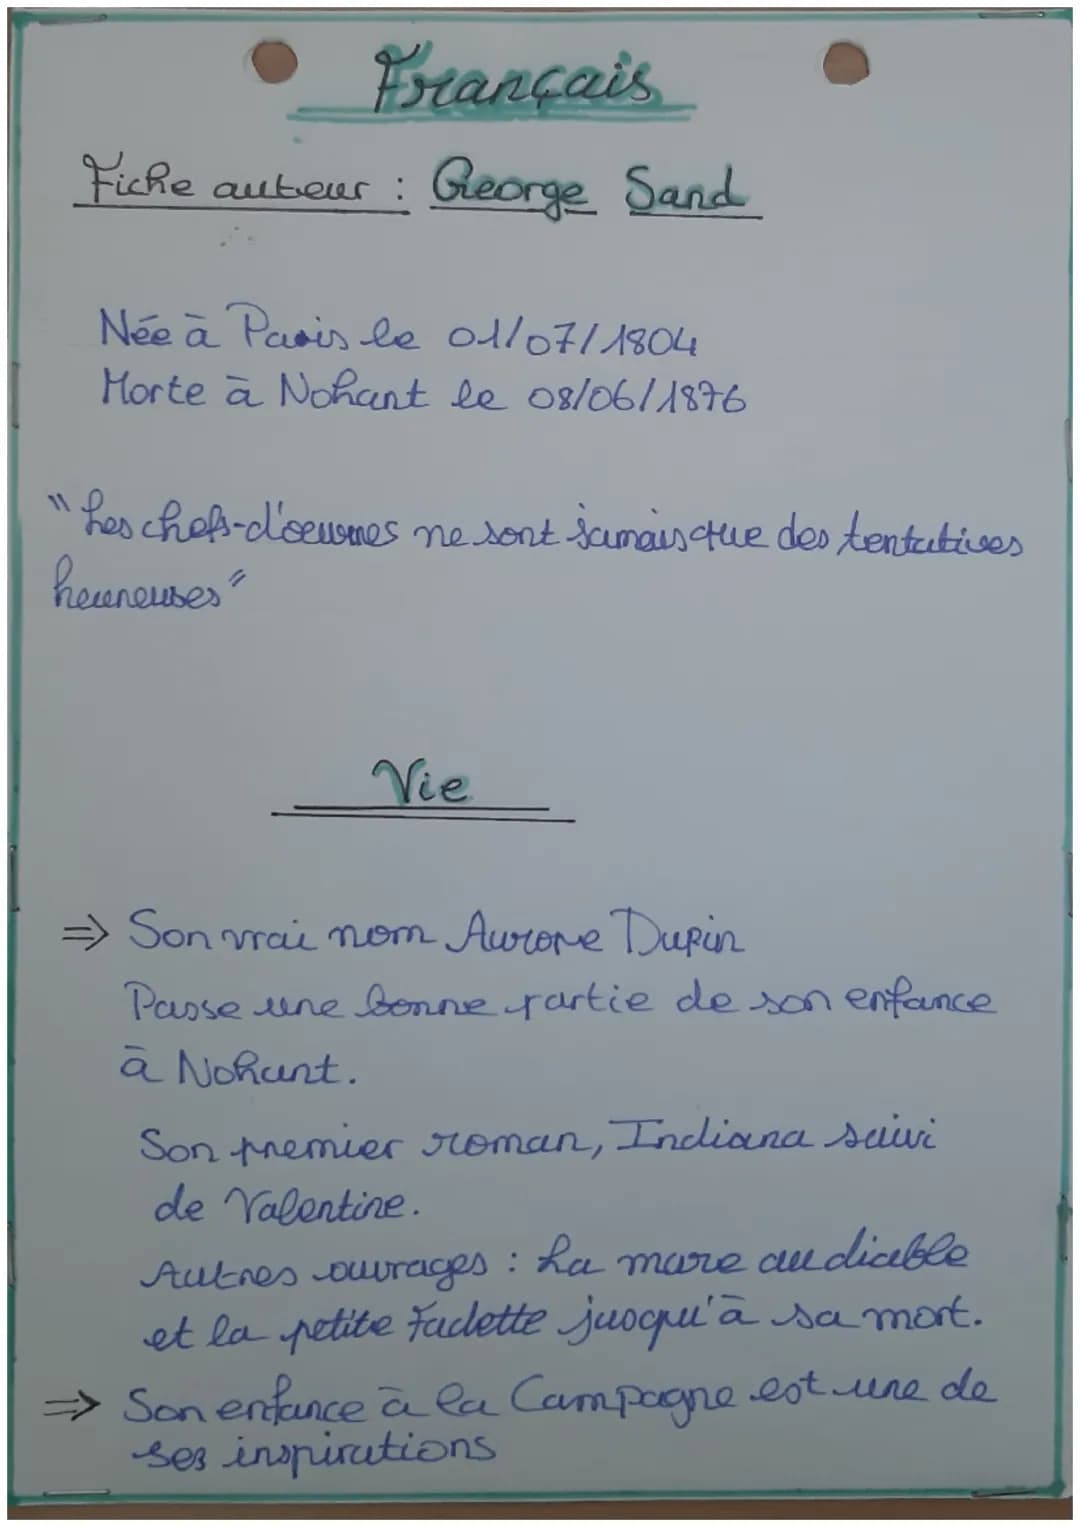 Français
Fiche auteur : George Sand
Née à Paris le 01/07/1804
Morte à Nohant le 08/06/1876
"Les chefs-d'oeuvres ne sont jamais que des tentatives
heureuses"
Vie
⇒ Son vrai nom Aurore Dupin
Passe une bonne partie de son enfance
à Nohant.
Son premier roman, Indiana suivi
de Valentine.
Autres ouvrages : La mare au diable
et la petite Fadette jusqu'à sa mort.
⇒ Son enfance à la Campagne est une de
ses inspirations